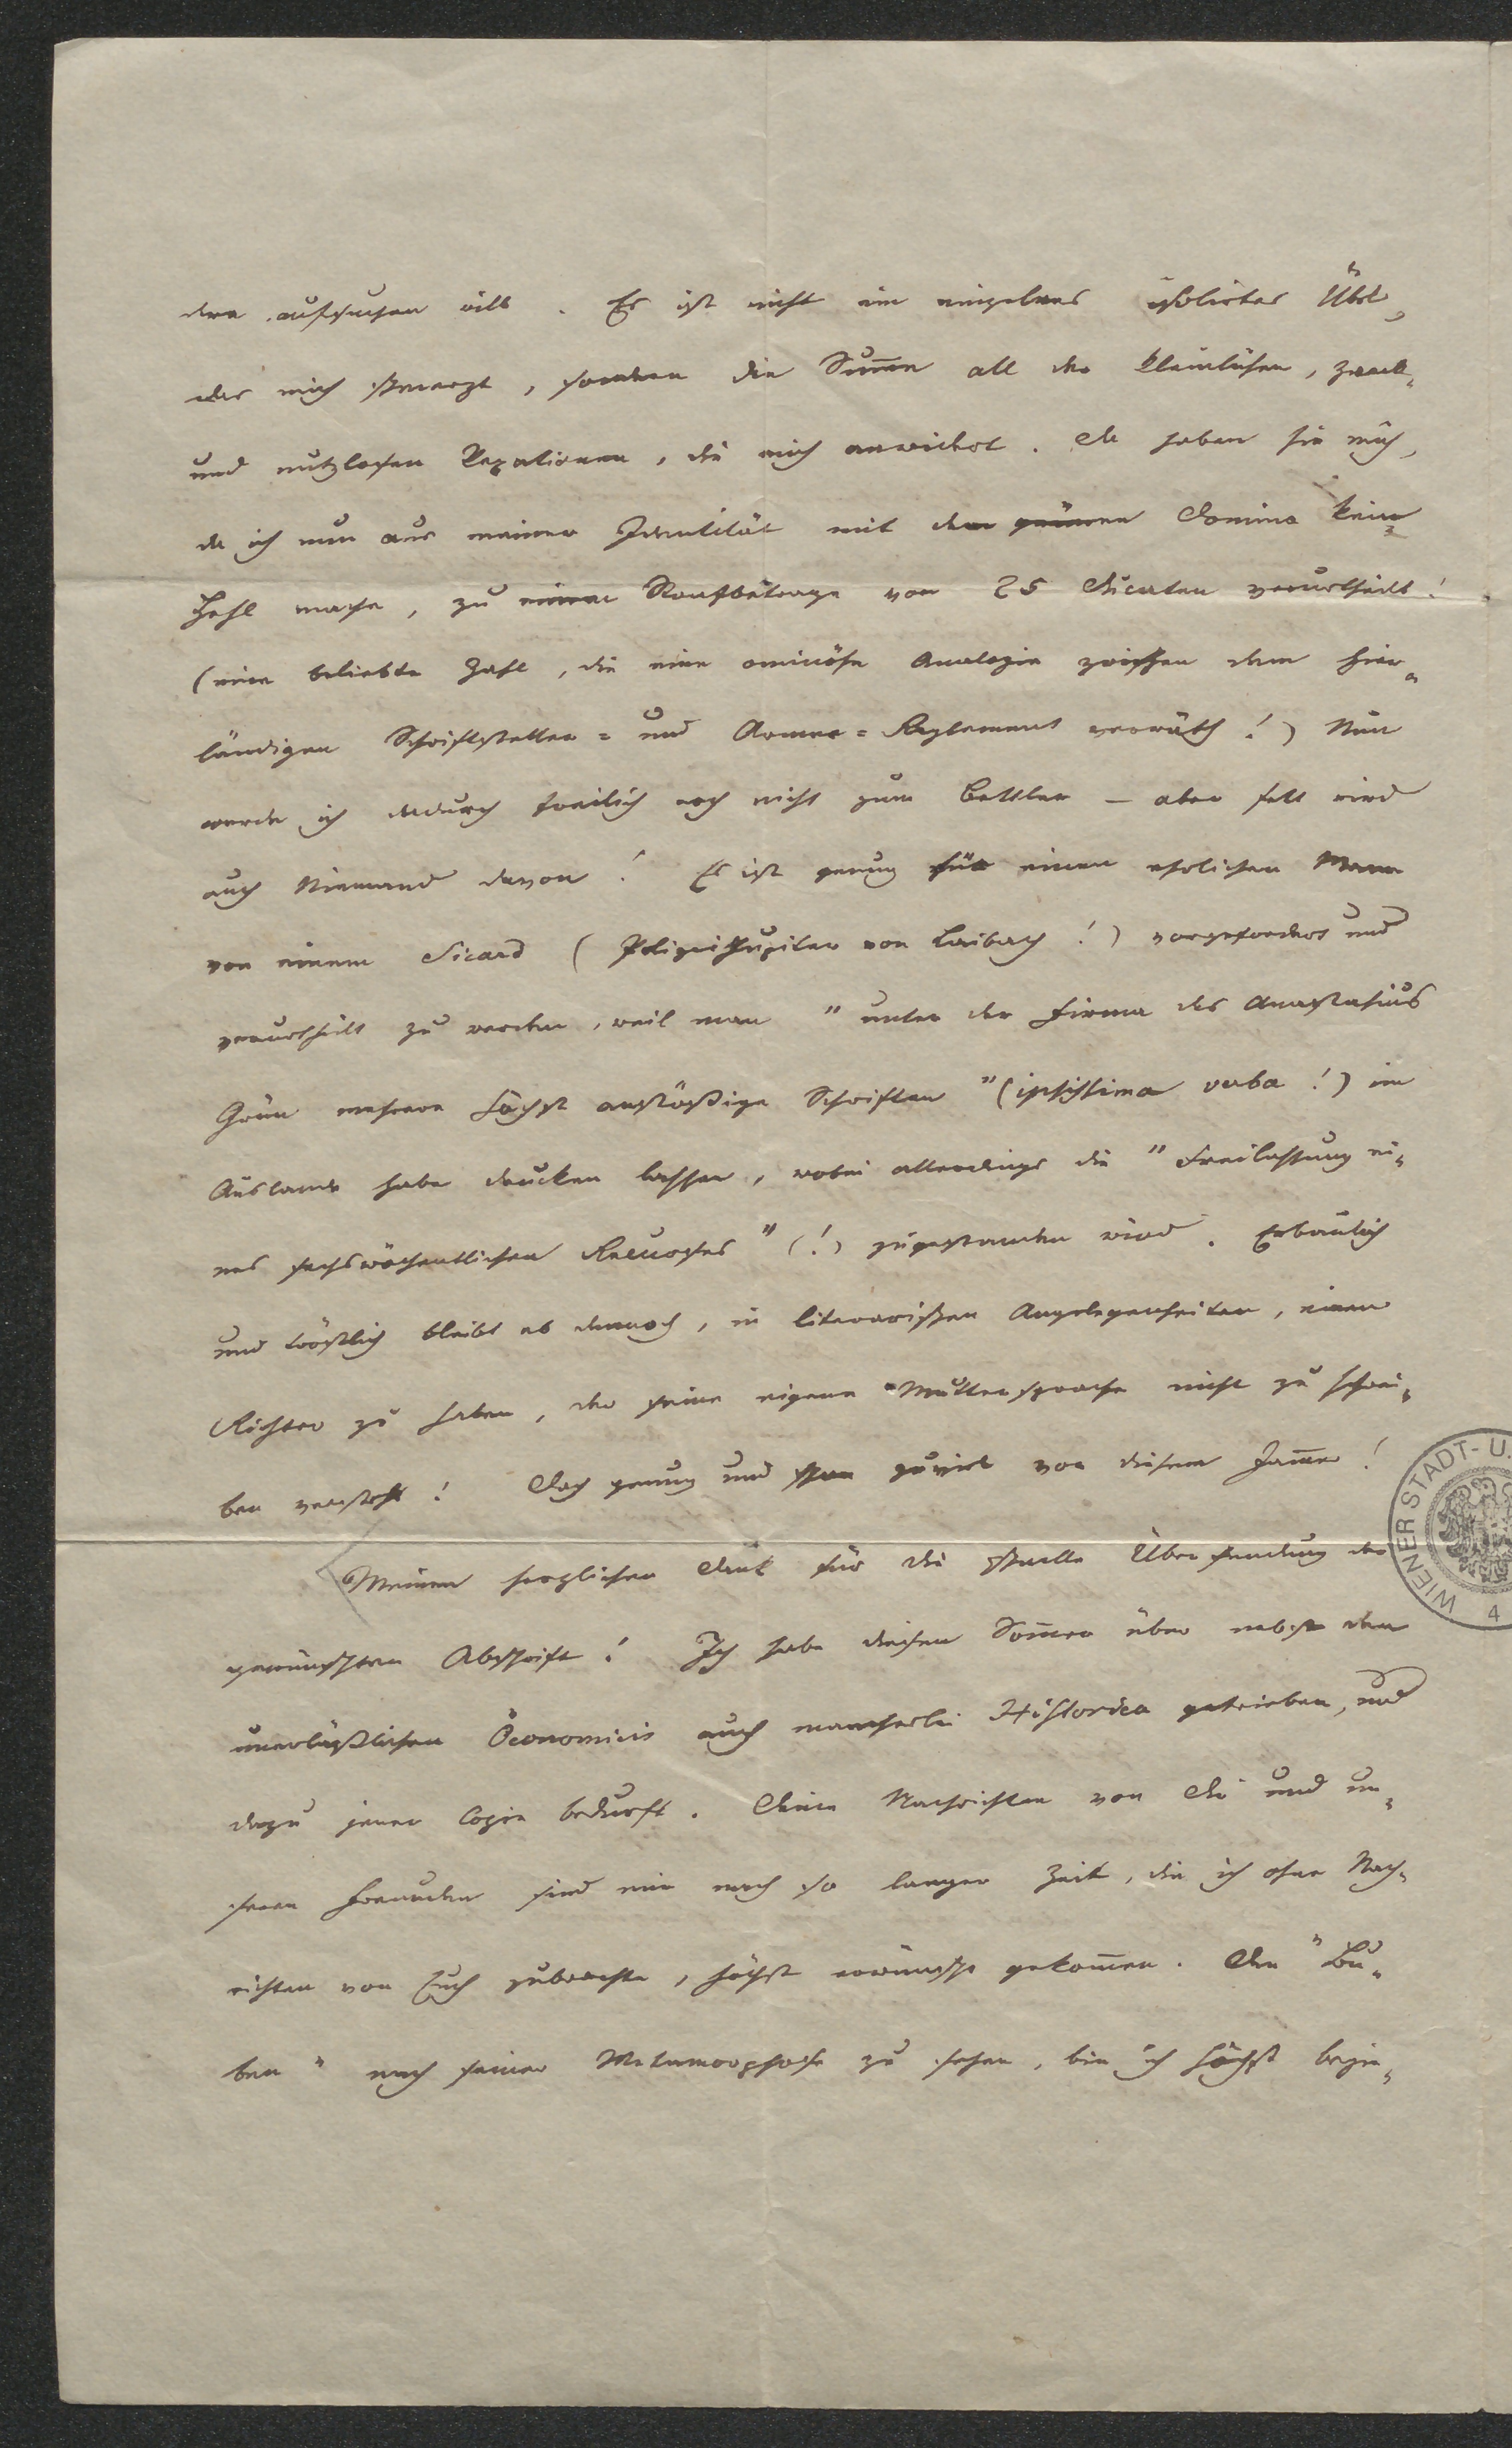 den aufsuchen will. Es ist nicht ein einzelnes isolirtes Übel,
das mich schmerzt, sondern die Sum̄e all der kleinlichen, zweck-
und nutzlosen Vexationen, die mich anwidert. Da haben sie mich,
da ich nun aus meiner Identität mit dem grünen Domino kein
Hehl mache, zu einem Strafbetrage von 25 Ducaten verurtheilt!
(eine beliebte Zahl, die eine ominöse Analogie zwischen dem hier-
ländigen Schriftsteller= und Armee=Reglement verräth!) Nun
werde ich dadurch freilich noch nicht zum Bettler – aber fett wird
auch Niemand davon! Es ist genug für einen ehrlichen Mann
von einem Sicard (Polizeijupiter von Laibach!) vorgefordert und
verurtheilt zu werden, weil man "unter der Firma des Anastasius
Grün mehrere höchst anstößige Schriften" (ipsissima verba!) im
Auslande habe drucken lassen, wobei allerdings die "Freilassung ei-
nes sechswöchentlichen Recurses" (!) zugestanden wird. Erbaulich
und tröstlich bleibt es dennoch, in literarischen Angelegenheiten, einen
Richter zu haben, der seine eigene Muttersprache nicht zu schrei-
ben versteht! Doch genug und schon zuviel von diesem Jam̄er!
Meinen herzlichen Dank für die schnelle Übersendung der
gewünschten Abschrift! Ich habe diesen Som̄er über nebst den
unerläßlichen Öconomicis auch mancherlei Historica getrieben, und
dazu jener Copie bedurft. Deine Nachrichten von Dir und un-
seren Freunden sind mir nach so langer Zeit, die ich ohne Nach-
richten von Euch zubrachte, höchst erwünscht gekom̄en. Den "Bu-
ben" nach seiner Metamorphose zu sehen, bin ich höchst begie-
WIENER STADT- U.
4